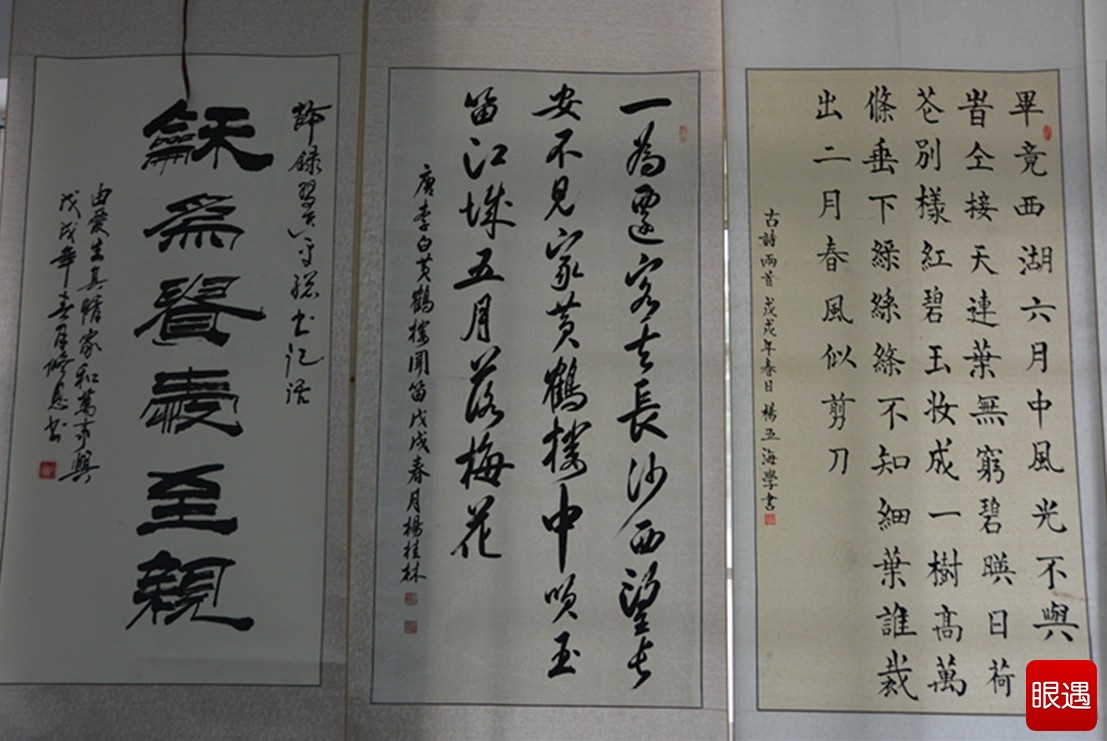 畢竟西湖六月中風光不與
旹仝接天連葉無窮碧暎日荷
芲別樣紅碧玉妆成一樹髙萬
條垂下綠絲絛不知細葉誰裁
出二月春風似剪刀
古詩兩首 戊戌年春日 楊五海學書
一為遷客去長沙西望長
安不見家黄鶴樓中吹玉
笛江城五月落梅花
唐李白黄鶴樓聞笛戊戌春月楊桂林
録習书记语
龢為貴愛至親
由愛生真情家和萬事興
戊戌年春月修恩书
眼遇